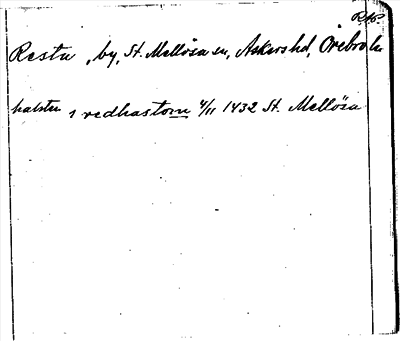 RAp.
Resta, by, St. Mellösa sn, Askers hd, Örebro län
halsten i redhastom 4/11 1432 St. Mellösa